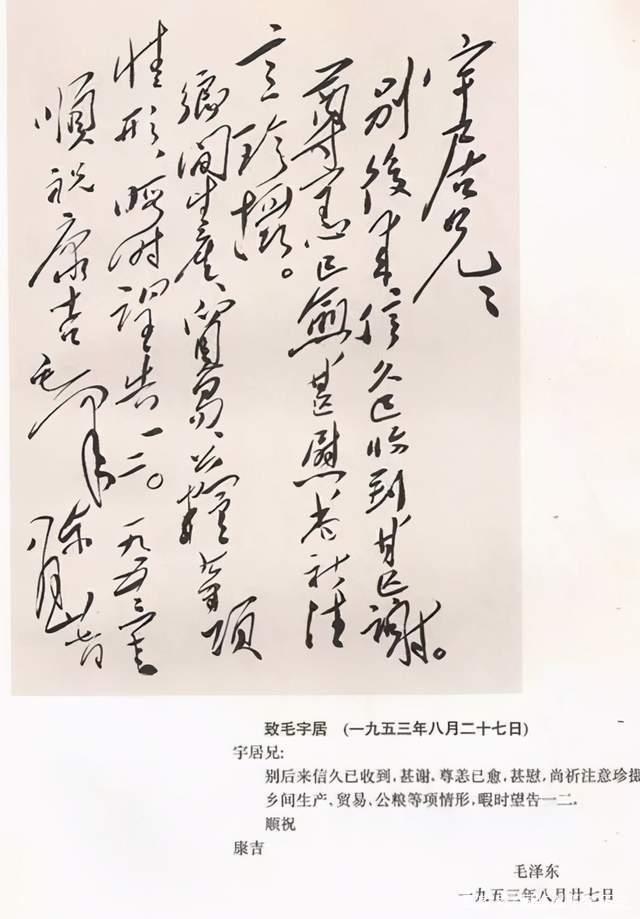 宇居兄：
别後来信久已收到甚謝。
尊恙已愈甚慰尚祈注
意珍摄。
鄉间生産、貿易、公糧等項
情形、暇时望告一二。一九五三年
順祝康吉 毛泽东 八月廿七日
致毛宇居 (一九五三年八月二十七日)
宇居兄:
别后来信久已收到,甚谢、尊恙已愈,甚慰,尚祈注意珍摄
乡间生产、贸易、公粮等项情形,暇时望告一二.
顺祝
康吉
毛泽东
一九五三年八月廿七日